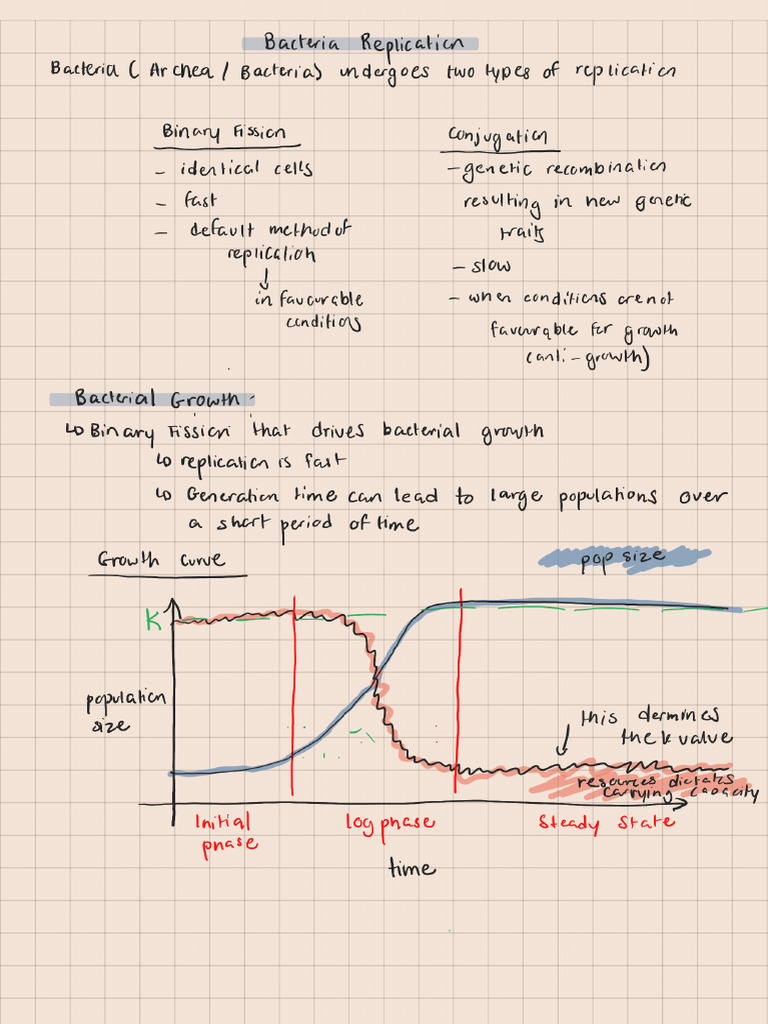 Bacteria Replication
Bacteria (Archea / Bacteria) undergoes two types of replication
Binary Fission
- identical cells
- fast
- default method of
replication
↓
in favourable
conditions
Conjugation
- genetic recombination
resulting in new genetic
traits
- slow
- when conditions are not
favourable for growth
(anti-growth)
Bacterial Growth
↳ Binary Fission that drives bacterial growth
↳ replication is fast
↳ Generation time can lead to large populations over
a short period of time
Growth curve
pop size
K
population
size
this dermines
the k value
resources dictates
carrying capacity
Initial
phase
log phase
Steady State
time